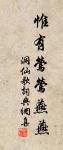 惟有鶯鶯燕燕
洞仙歌詞典網集